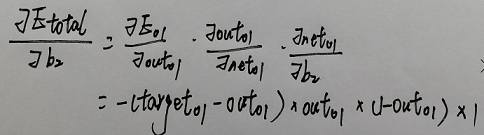 ∂Etotal/∂b₂ = ∂E₀₁/∂out₀₁ · ∂out₀₁/∂net₀₁ · ∂net₀₁/∂b₂
= -(target₀₁ - out₀₁) × out₀₁ × (1-out₀₁) × 1